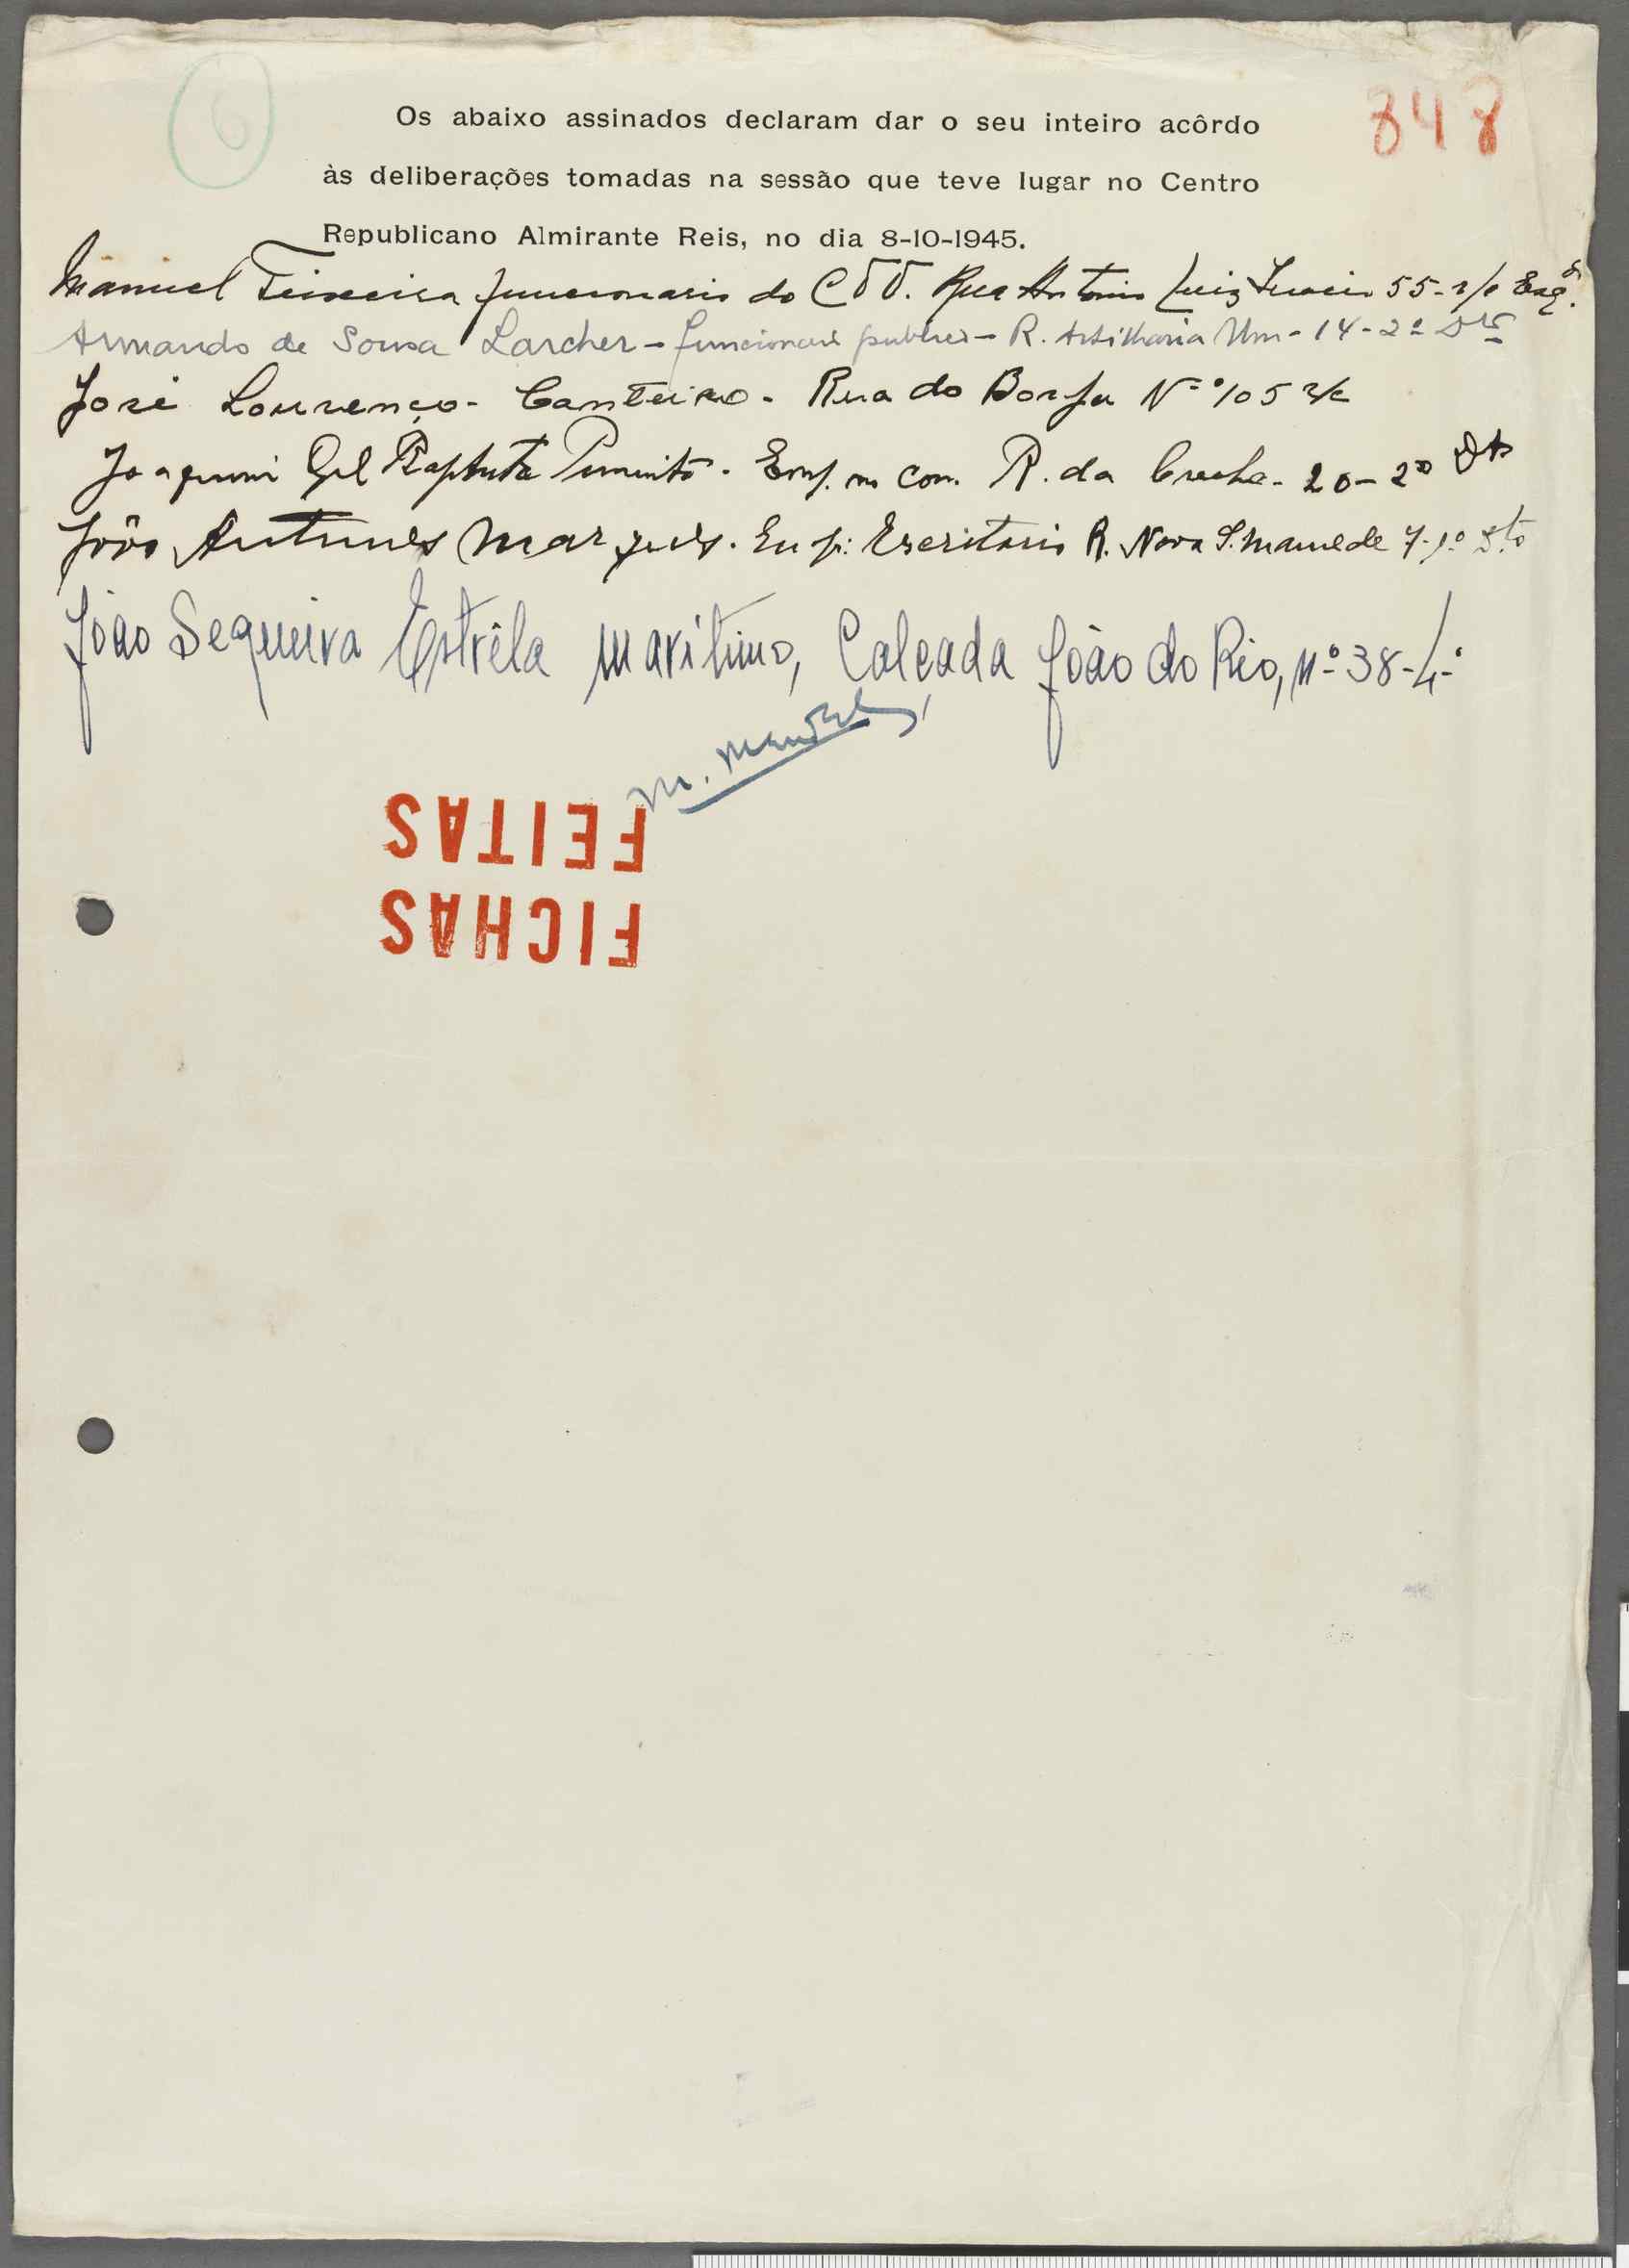 6
848
Os abaixo assinados declaram dar o seu inteiro acôrdo
às deliberações tomadas na sessão que teve lugar no Centro
Republicano Almirante Reis, no dia 8-10-1945.
Manuel Teixeira funcionario do Rua Antonio Luiz 55-r/c Esqº.
Armando de Sousa Larcher - funcionario publico - R. Artilharia Um - 14 - 2º Dto
José Lourenço - Canteiro - Rua do Borja Nº 105 r/c
Joaquim Gil Baptista Pimenta - Emp. no com. R. da Creche - 20 - 2º Dto
João Antunes Marques. Emp: Escritorio R. Nova S. Mamede 7-1º Dto
João Sequeira Estrêla marítimo, Calçada João do Rio, nº 38-4º
M. Mendes
FICHAS
FEITAS